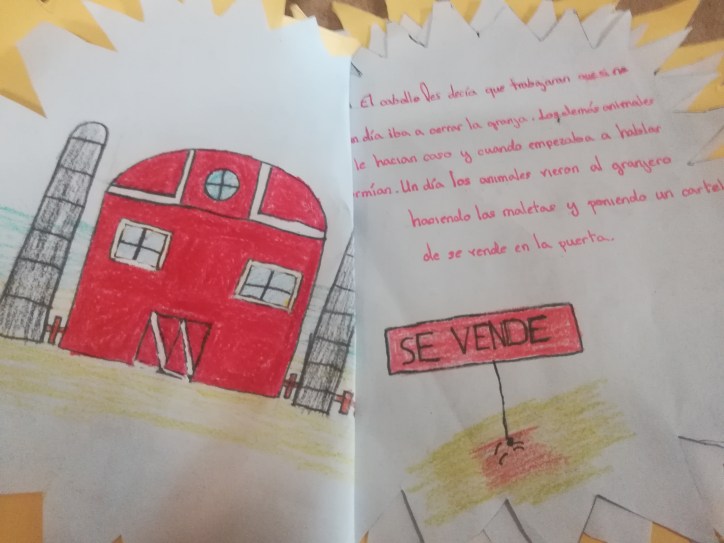 El caballo les decía que trabajaran que si no
un día iba a cerrar la granja. Los demás animales
le hacían caso y cuando empezaba a hablar
dormían. Un día los animales vieron al granjero
haciendo las maletas y poniendo un cartel
de se vende en la puerta.
SE VENDE